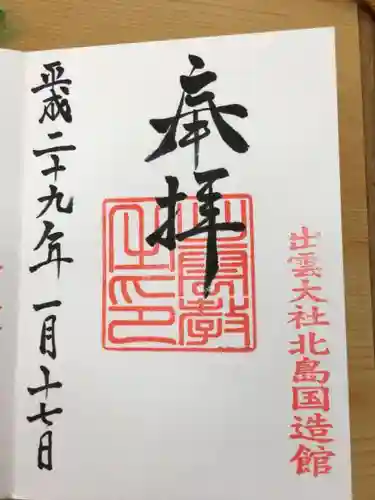 出雲大社北島国造館
奉拝
出雲教
之印
平成二十九年一月十七日